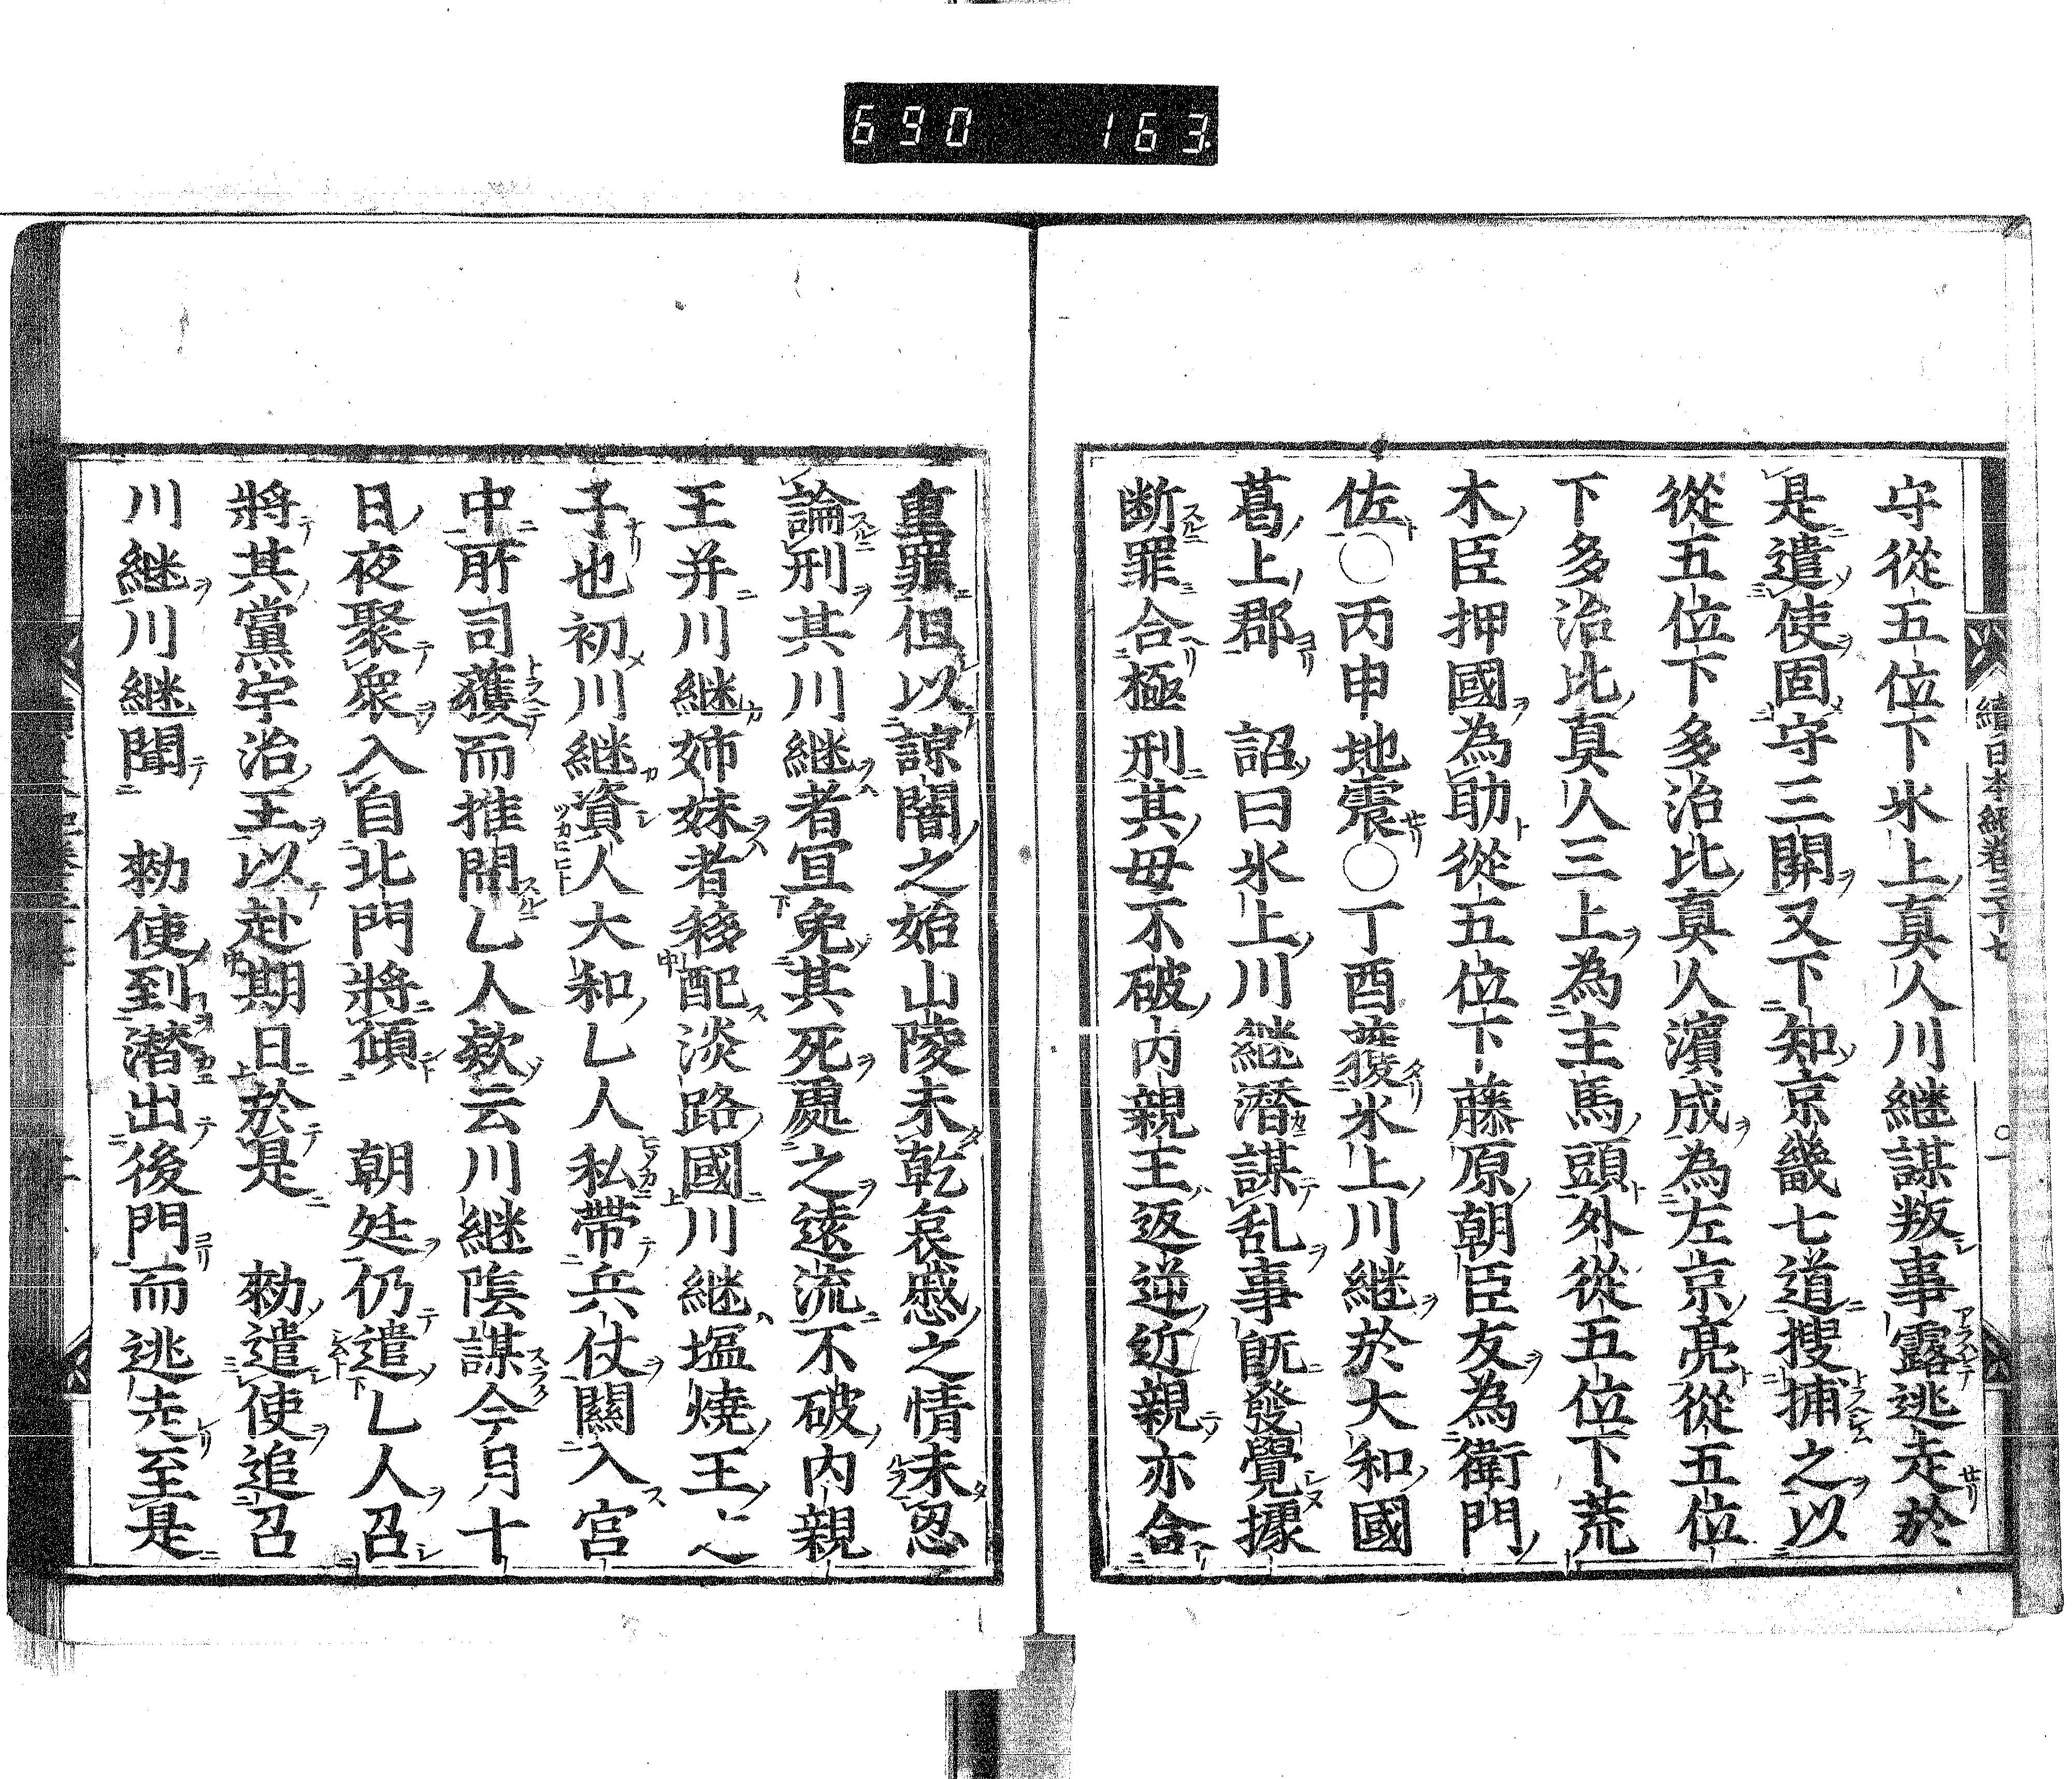 690 163.
續日本紀卷三十七
守從五位下氷上真人川継謀叛事露逃走於
是遣使固守三関又下知京畿七道搜捕之以
從五位下多治比真人濵成為左京亮從五位
下多治比真人三上為主馬頭外從五位下荒
木臣押國為助從五位下藤原朝臣友為衛門
佐○丙申地震○丁酉獲氷上川継於大和國
葛上郡 詔曰氷上川継潛謀乱事既發覺據
断罪合極刑其母不破内親王返逆近親亦合
重罪但以諒闇之始山陵未乾哀戚之情未忍
論刑其川継者宜免其死處之遠流不破内親
王并川継姉妹者移配淡路國川継塩燒王之
子也初川継資人大和乙人私帶兵仗闌入宮
中所司獲而推問乙人欵云川継陰謀今月十
日夜聚衆入自北門將傾 朝廷仍遣乙人召
將其黨宇治王以赴期日於是 勑遣使追召
川継川継聞 勑使到潛出後門而逃走至是